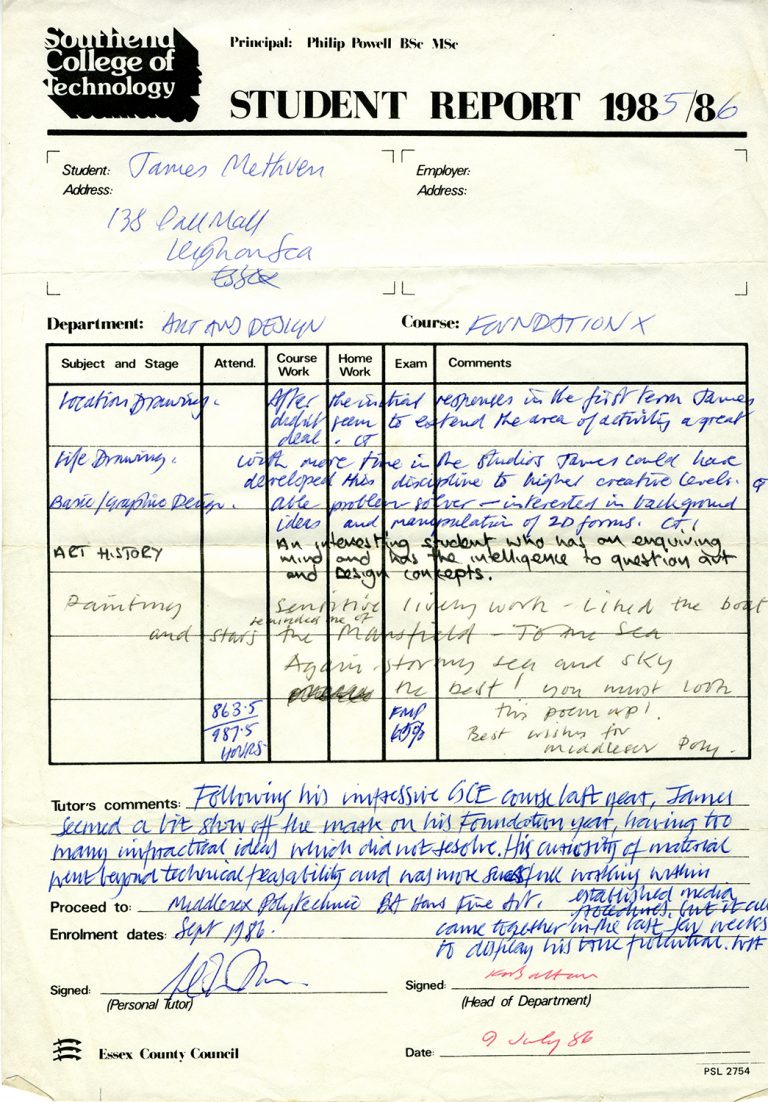 Southend
College of
Technology
Principal: Philip Powell BSc MSc
STUDENT REPORT 1985/86
Student: James Methven
Address:
138 Pall Mall
Leigh on Sea
Essex
Employer:
Address:
Department: ART AND DESIGN
Course: FOUNDATION X
Subject and Stage Attend. Course Work Home Work Exam Comments
Location Drawing. After the initial responses in the first term James
didnt seem to extend the area of activity a great
deal. CT
Life Drawing. With more time in the studios James could have
developed this discipline to higher creative levels. CT
Basic/Graphic Design. able problem solver – interested in background
ideas and manipulation of 2D forms. CT.
ART HISTORY An interesting student who has an enquiring
mind and has the intelligence to question art
and Design concepts.
Painting Sensitive lively work – Liked the boat
and stars reminded me of the Mansfield – To me Sea
Again – stormy sea and sky
the best! you must look
this poem up!
Best wishes for
Middlesex Poly.
863.5
987.5
HOURS
EMP
65%
Tutor's comments: Following his impressive GCE course last year, James
seemed a bit slow off the mark on his Foundation year, having too
many impractical ideas which did not resolve. His curiosity of material
went beyond technical feasability and was more successful working within
established media
procedures, but it all
came together in the last few weeks
to display his true potential.
Proceed to: Middlesex Polytechnic BA Hons Fine Art.
Enrolment dates: Sept 1986.
Signed:
(Personal Tutor)
Signed:
(Head of Department)
Essex County Council
Date: 9 July 86
PSL 2754